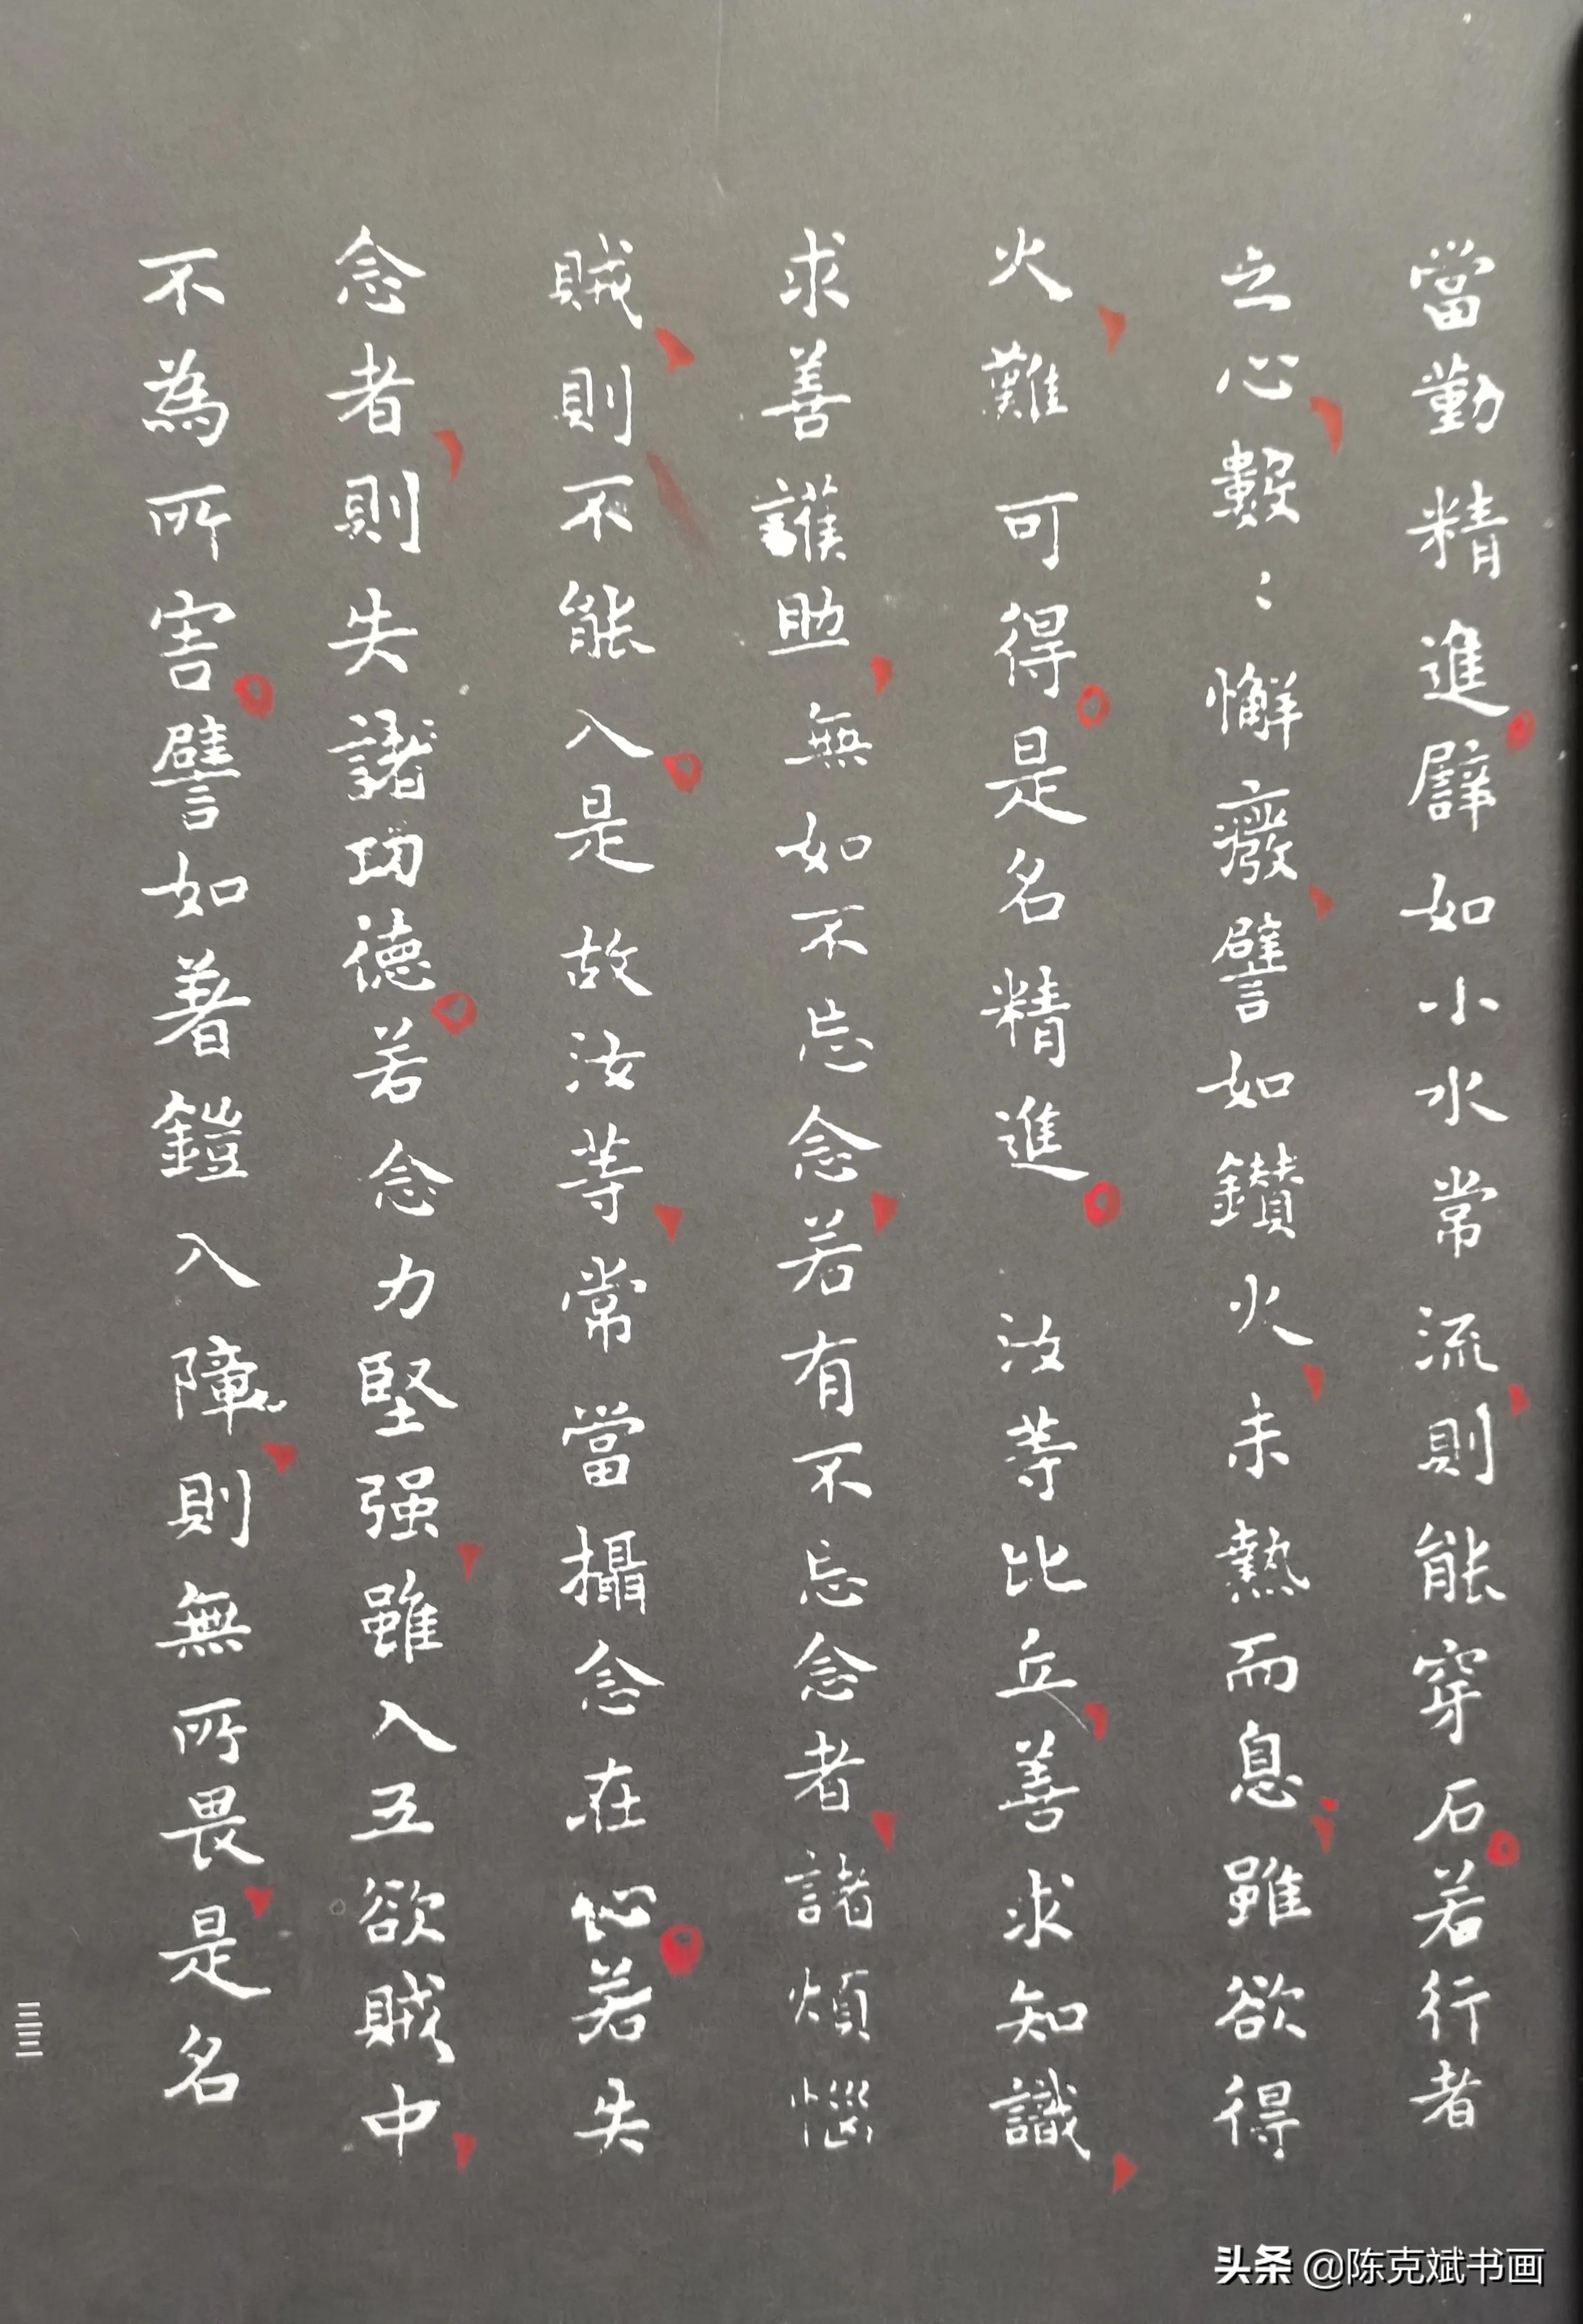 當勤精進譬如小水常流則能穿石若行者
之心數〻懈癈譬如鑚火未熱而息雖欲得
火難可得是名精進 汝等比丘善求知識
求善護助無如不忘念若有不忘念者諸煩惱
賊則不能入是故汝等常當攝念在心若失
念者則失諸功德若念力堅强雖入五欲賊中
不為所害譬如著鎧入陣則無所畏是名
三三
头条 @陈克斌书画